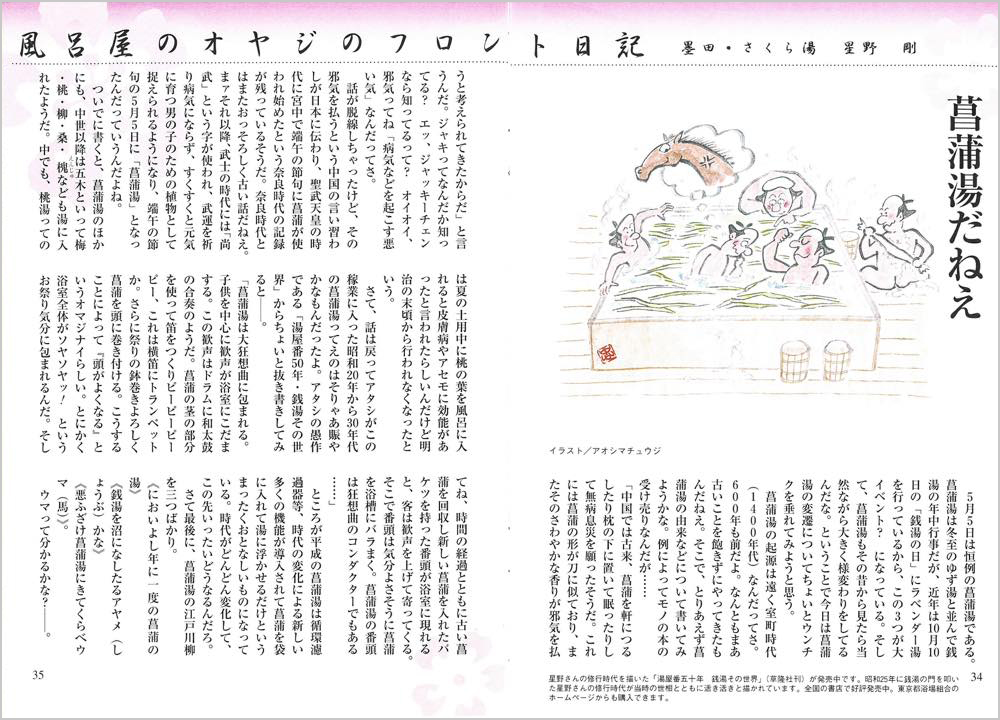 風呂屋のオヤジのフロント日記 墨田・さくら湯 星野 剛
菖蒲湯だねえ
イラスト/アオシマチュウジ
５月５日は恒例の菖蒲湯である。
菖蒲湯は冬至のゆず湯と並んで銭
湯の年中行事だが、近年は10月10
日の「銭湯の日」にラベンダー湯
を行っているから、この３つが大
イベント？ になっている。そし
て、菖蒲湯もその昔から見たら当
然ながら大きく様変わりをしてる
んだな。ということで今日は菖蒲
湯の変遷についてちょいとウンチ
クを垂れてみようと思う。
菖蒲湯の起源は遠く室町時代
（１４００年代）なんだってさ。
６００年も前だよ。なんともまあ
古いことを飽きずにやってきたも
んだねえ。そこで、とりあえず菖
蒲湯の由来などについて書いてみ
ようかな。例によってモノの本の
受け売りなんだが――
「中国では古来、菖蒲を軒につる
したり枕の下に置いて眠ったりし
て無病息災を願ったそうだ。これ
には菖蒲の形が刀に似ており、ま
たそのさわやかな香りが邪気を払
星野さんの修行時代を描いた「湯屋番五十年 銭湯その世界」（草隆社刊）が発売中です。昭和25年に銭湯の門を叩い
た星野さんの修行時代が当時の世相とともに活き活きと描かれています。全国の書店で好評発売中。東京都浴場組合の
ホームページからも購入できます。
34
うと考えられてきたからだ」と言
うんだ。ジャキってなんだか知っ
てる？ エッ、ジャッキーチェン
なら知ってるって？ オイオイ、
邪気ってね「病気などを起こす悪
い気」なんだってさ。
話が脱線しちゃったけど、その
邪気を払うという中国の言い習わ
しが日本に伝わり、聖武天皇の時
代に宮中で端午の節句に菖蒲が使
われ始めたという奈良時代の記録
が残っているそうだ。奈良時代と
はまたおっそろしく古い話だねえ。
まァそれ以降、武士の時代には、「尚
武」という字が使われ、武運を祈
り病気にならず、すくすくと元気
に育つ男の子のための植物として
捉えられるようになり、端午の節
句の５月５日に「菖蒲湯」となっ
たんだっていうんだよね。
ついでに書くと、菖蒲湯のほか
にも、中世以降は五木といって梅
・桃・柳・桑・槐なども湯に入
れたようだ。中でも、桃湯っての
は夏の土用中に桃の葉を風呂に入
れると皮膚病やアセモに効能があ
ったと言われたらしいんだけど明
治の末頃から行われなくなったと
いう。
さて、話は戻ってアタシがこの
稼業に入った昭和20年から30年代
の菖蒲湯ってえのはそりゃあ賑や
かなもんだったよ。アタシの愚作
である「湯屋番50年・銭湯その世
界」からちょいと抜き書きしてみ
ると――。
「菖蒲湯は大狂想曲に包まれる。
子供を中心に歓声が浴室にこだま
する。この歓声はドラムに和太鼓
の合奏のようだ。菖蒲の茎の部分
を使って笛をつくりピーピーピー
ピー、これは横笛にトランペット
か。さらに祭りの鉢巻きよろしく
菖蒲を頭に巻き付ける。こうする
ことによって『頭がよくなる』と
いうオマジナイらしい。とにかく
浴室全体がソヤソヤッ！ という
お祭り気分に包まれるんだ。そし
てね、時間の経過とともに古い菖
蒲を回収し新しい菖蒲を入れたバ
ケツを持った番頭が浴室に現れる
と、客は歓声を上げて寄ってくる。
そこで番頭は気分よよさそうに菖蒲
を浴槽にバラまく。菖蒲湯の番頭
は狂想曲のコンダクターでもある
……」
ところが平成の菖蒲湯は循環濾
過器等、時代の変化による新しい
多くの機能が導入されて菖蒲を袋
に入れて湯に浮かせるだけという
まったくおとなしいものになって
いる。時代がどんどん変化して、
この先いったいどうなるんだろ。
さて最後に、菖蒲湯の江戸川柳
を三つばかり。
《においよし年に一度の菖蒲の
湯》
《銭湯を沼になしたるアヤメ（し
ょうぶ）かな》
《悪ふざけ菖蒲湯にきてくらべウ
マ（馬）》。
ウマって分かるかな？――。
35